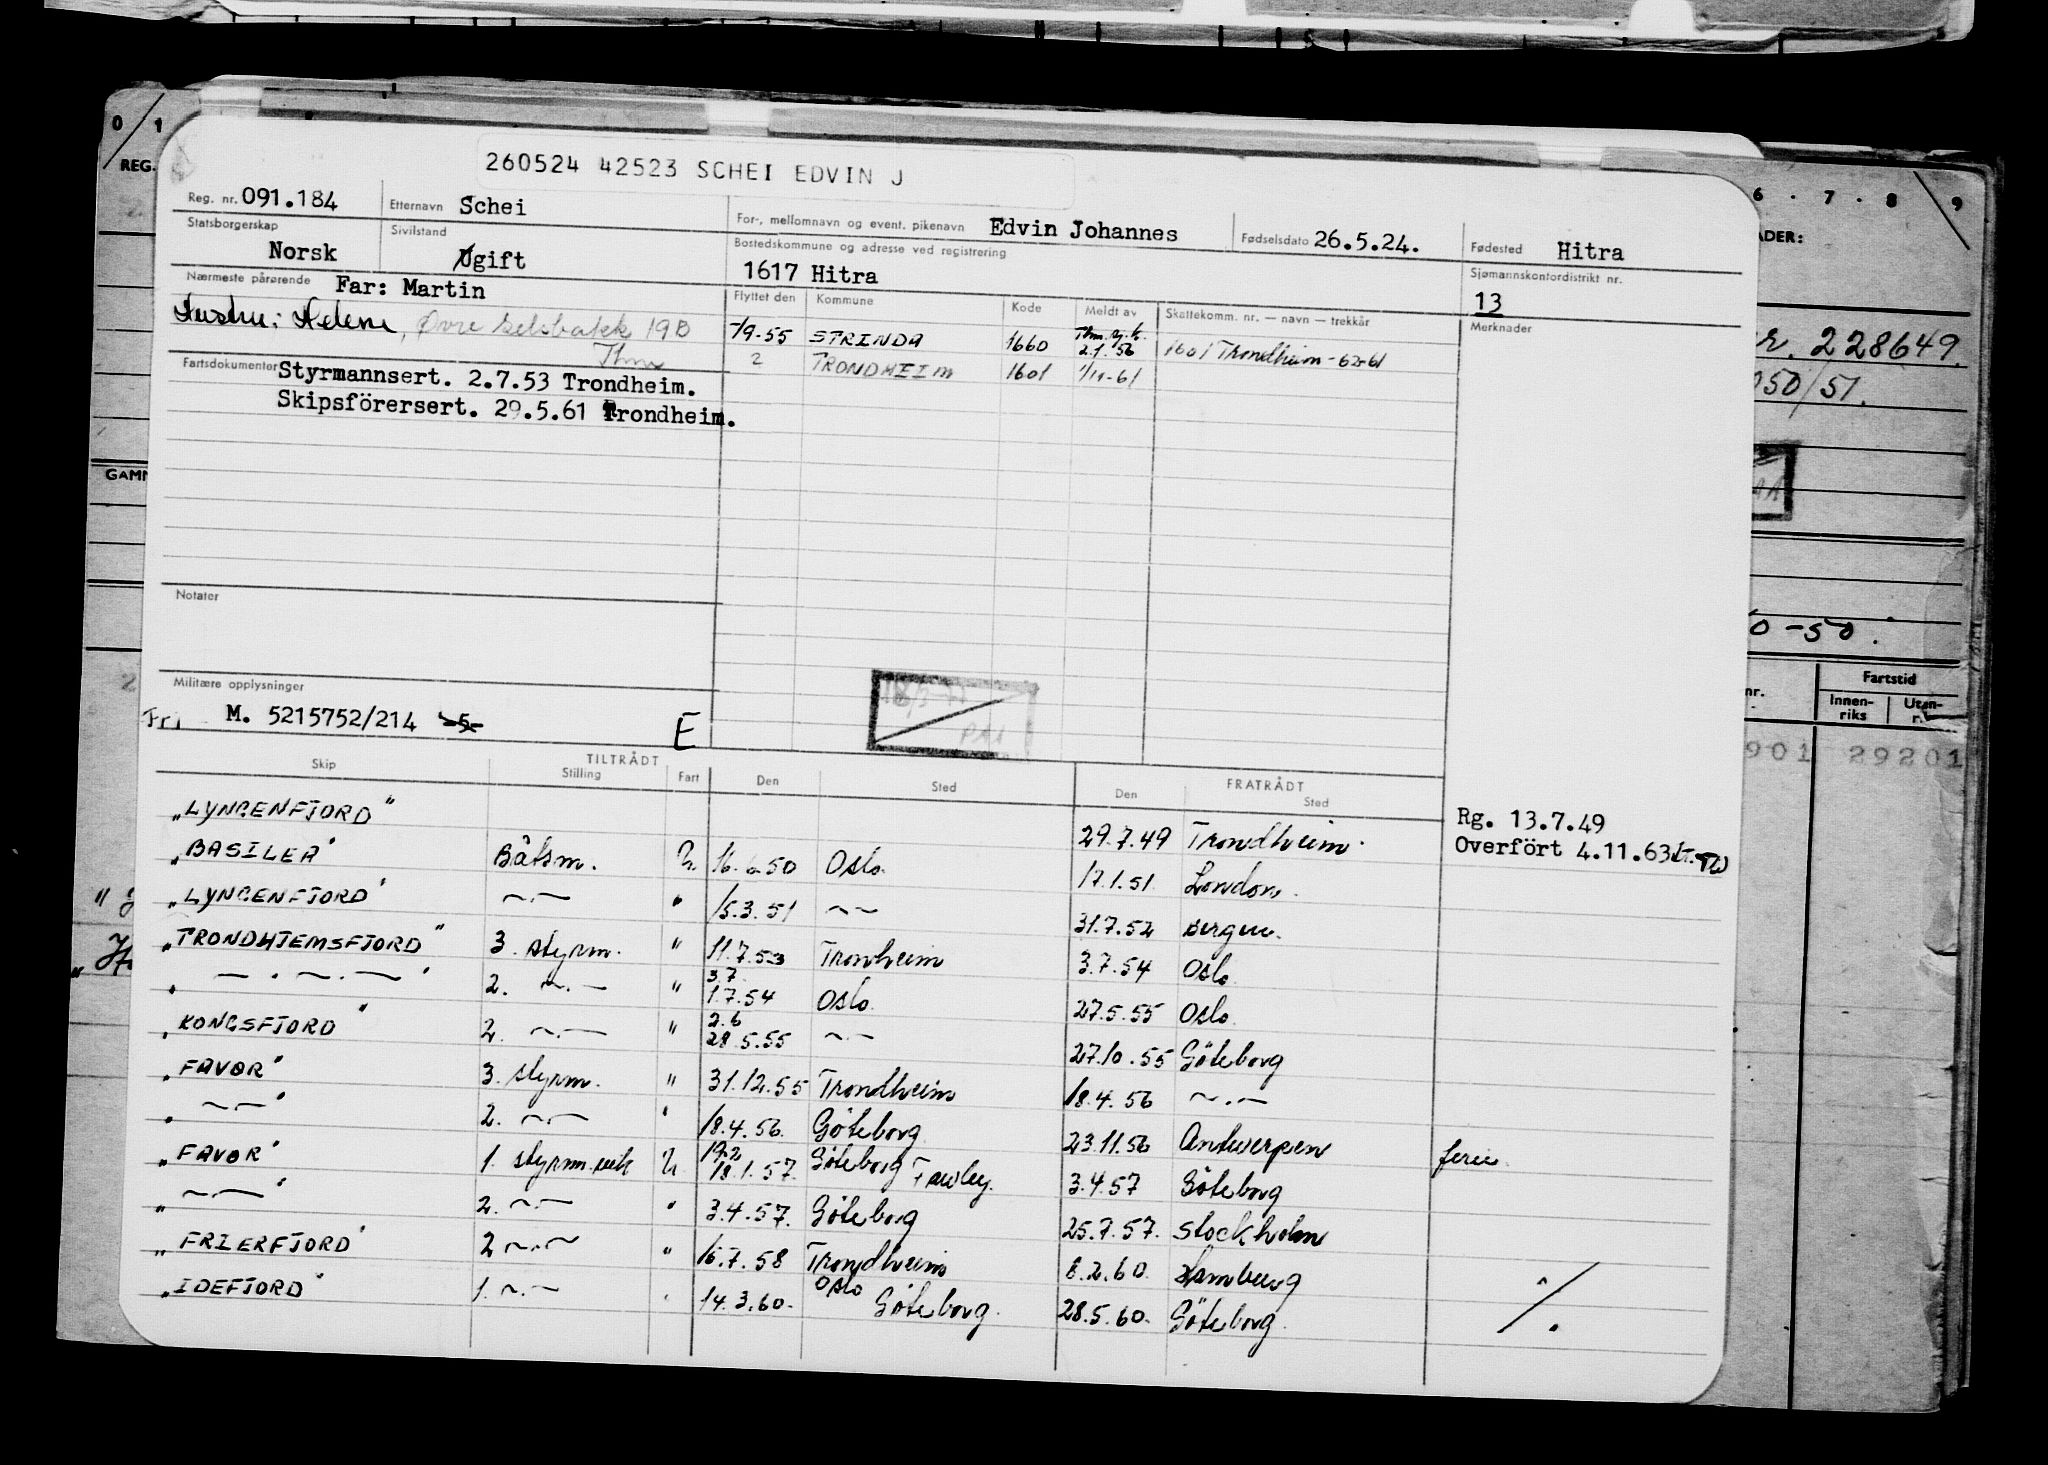 0 / 1
6 . 7 . 8 9
REG.
ADER:
260524 42523 SCHEI EDVIN J
Reg. nr. 091.184 Etternavn Schei For-, mellomnavn og event. pikenavn Edvin Johannes Fødselsdato 26.5.24. Fødested Hitra
Statsborgerskap Norsk Sivilstand Ugift Bostedskommune og adresse ved registrering 1617 Hitra Sjømannskontordistrikt nr. 13
Nærmeste pårørende Far: Martin Flyttet den Kommune Kode Meldt av Skattekomm. nr. — navn — trekkår Merknader
Hustru: Helene, Øvre 19B -/9-55 STRINDA 1660 2.1.56 1601 Trondheim - 62-61
2 TRONDHEIM 1601 1/11-61
Fartsdokumenter Styrmannsert. 2.7.53 Trondheim.
Skipsförersert. 29.5.61 Trondheim.
r. 228649
050/51.
GAMM
Notater
0-50.
Militære opplysninger
Fri M. 5215752/214 -5- E
nr. Fartstid
Innen-riks Uten-r.
901 29201
Skip TILTRÅDT Stilling Fart Den Sted FRATRÅDT Den Sted
"LYNGENFJORD" 29.7.49 Trondheim. Rg. 13.7.49
"BASILEA" Båtsm. U. 16.6.50 Oslo. 17.1.51. London. Overfört 4.11.63
"LYNGENFJORD" -"- " 15.3.51 -"- 31.7.52 Bergen.
"TRONDHJEMSFJORD" 3. styrm. " 11.7.53 Tronheim 3.7.54 Oslo.
" — " — " 2. -"- " 3.7. 1.7.54 Oslo. 27.5.55 Oslo.
"KONGSFJORD" 2. -"- " 2.6 28.5.55 -"- 27.10.55 Göteborg
"FAVOR" 3. styrm. " 31.12.55 Trondheim 18.4.56 -"-
" -"- " 2. -"- " 18.4.56. Göteborg 23.11.56 Antwerpen ferie.
"FAVOR" 1. styrm. vik U. 19.2 18.1.57. Göteborg Fawley. 3.4.57 Göteborg
" -"- " 2. -"- " 3.4.57. Göteborg 25.7.57. Stockholm
"FRIERFJORD" 2 -"- " 16.7.58 Trondheim 8.2.60. Hamburg
"IDEFJORD" 1. -"- " 14.3.60. Oslo Göteborg. 28.5.60. Göteborg.